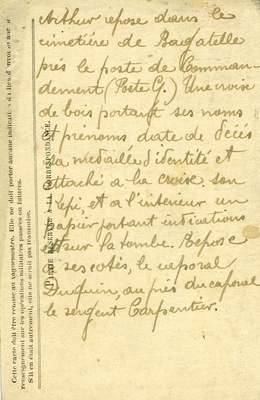 Arthur repose dans le
cimetière de Bagatelle
près le poste de Comman-
dement (Poste G.) Une croise
de bois portant ses noms
et prénoms date de décés
sa medaille d'identité et
attaché a la croise son
Kepi, et a l'interieur un
papier portant indications
sur la tombe. Repose
a ses cotés, le caporal
Duquin, au près du caporal
le sergent Carpentier.
PARTIE RÉSERVÉE A LA CORRESPONDANCE.
Cette carte doit être remise au vaguemestre. Elle ne doit porter aucune indication du lieu d'envoi ni aucun
renseignement sur les opérations militaires passées ou futures.
S'il en était autrement, elle ne serait pas transmise.